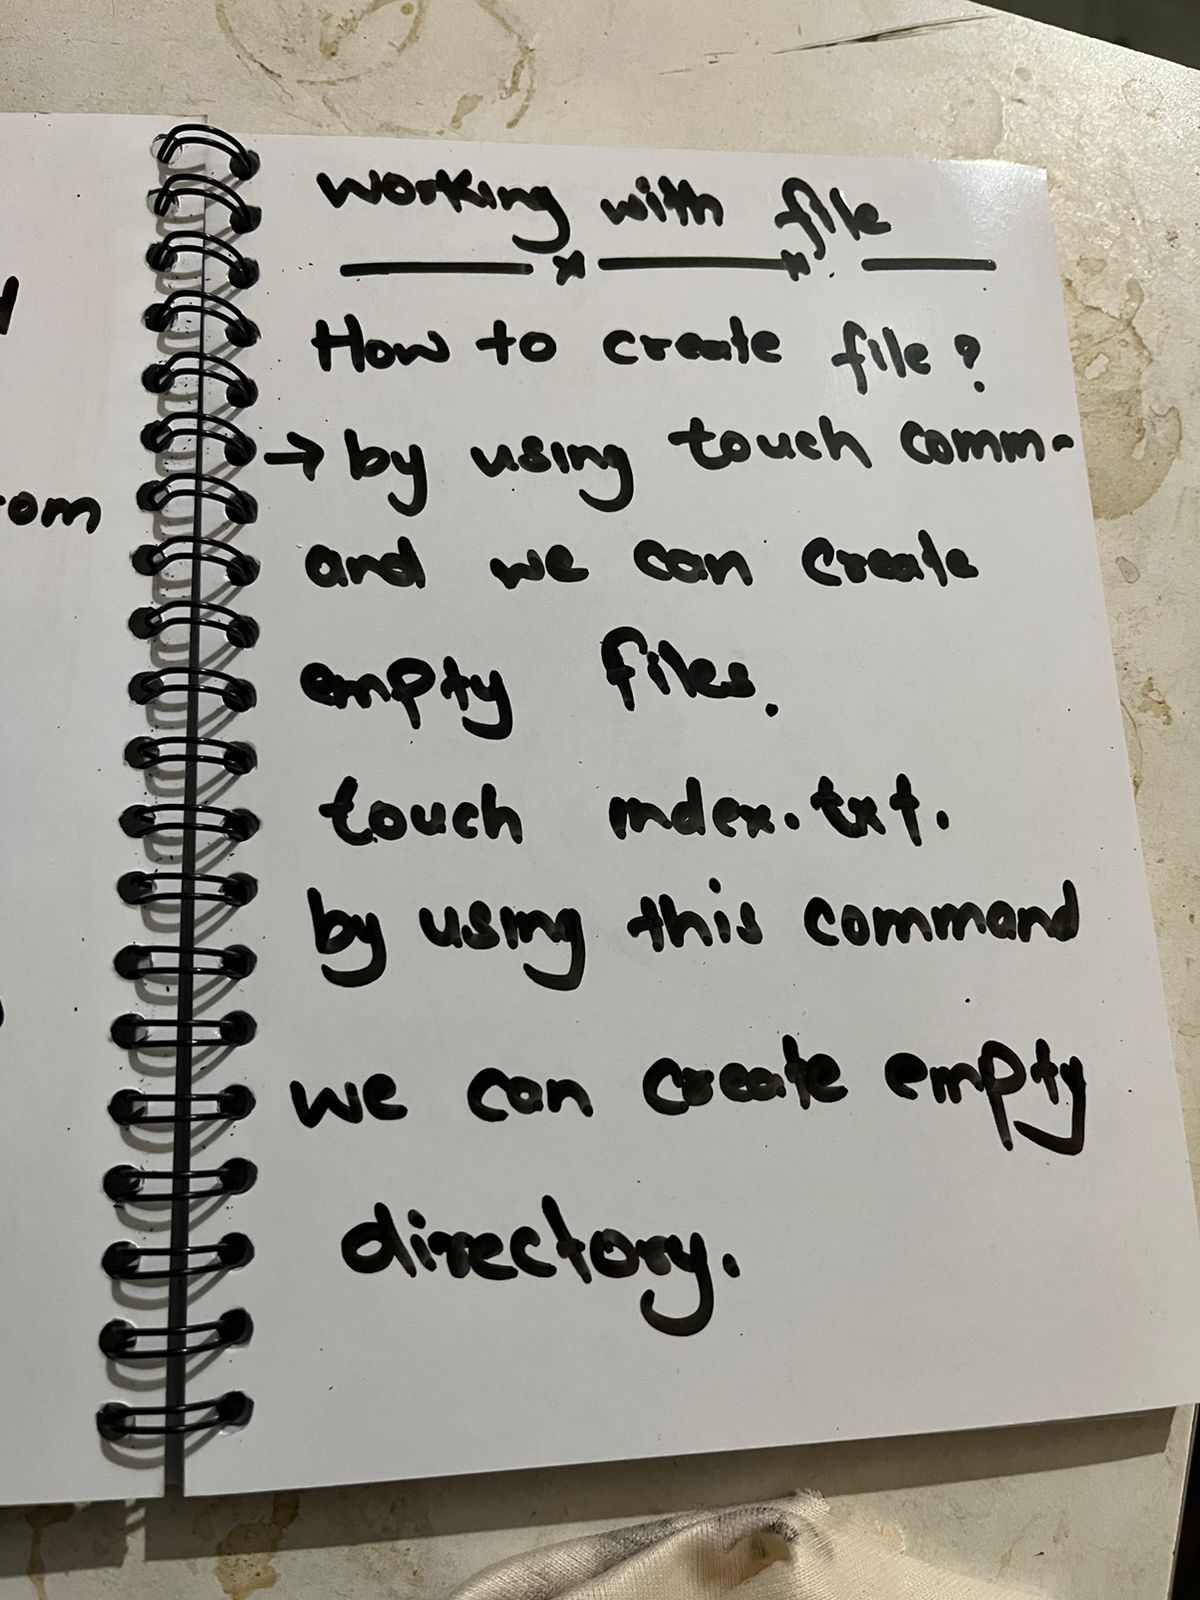 working with file
How to create file?
→ by using touch comm-
and we can create
empty files.
touch index.txt.
by using this command
we can create empty
directory.
om